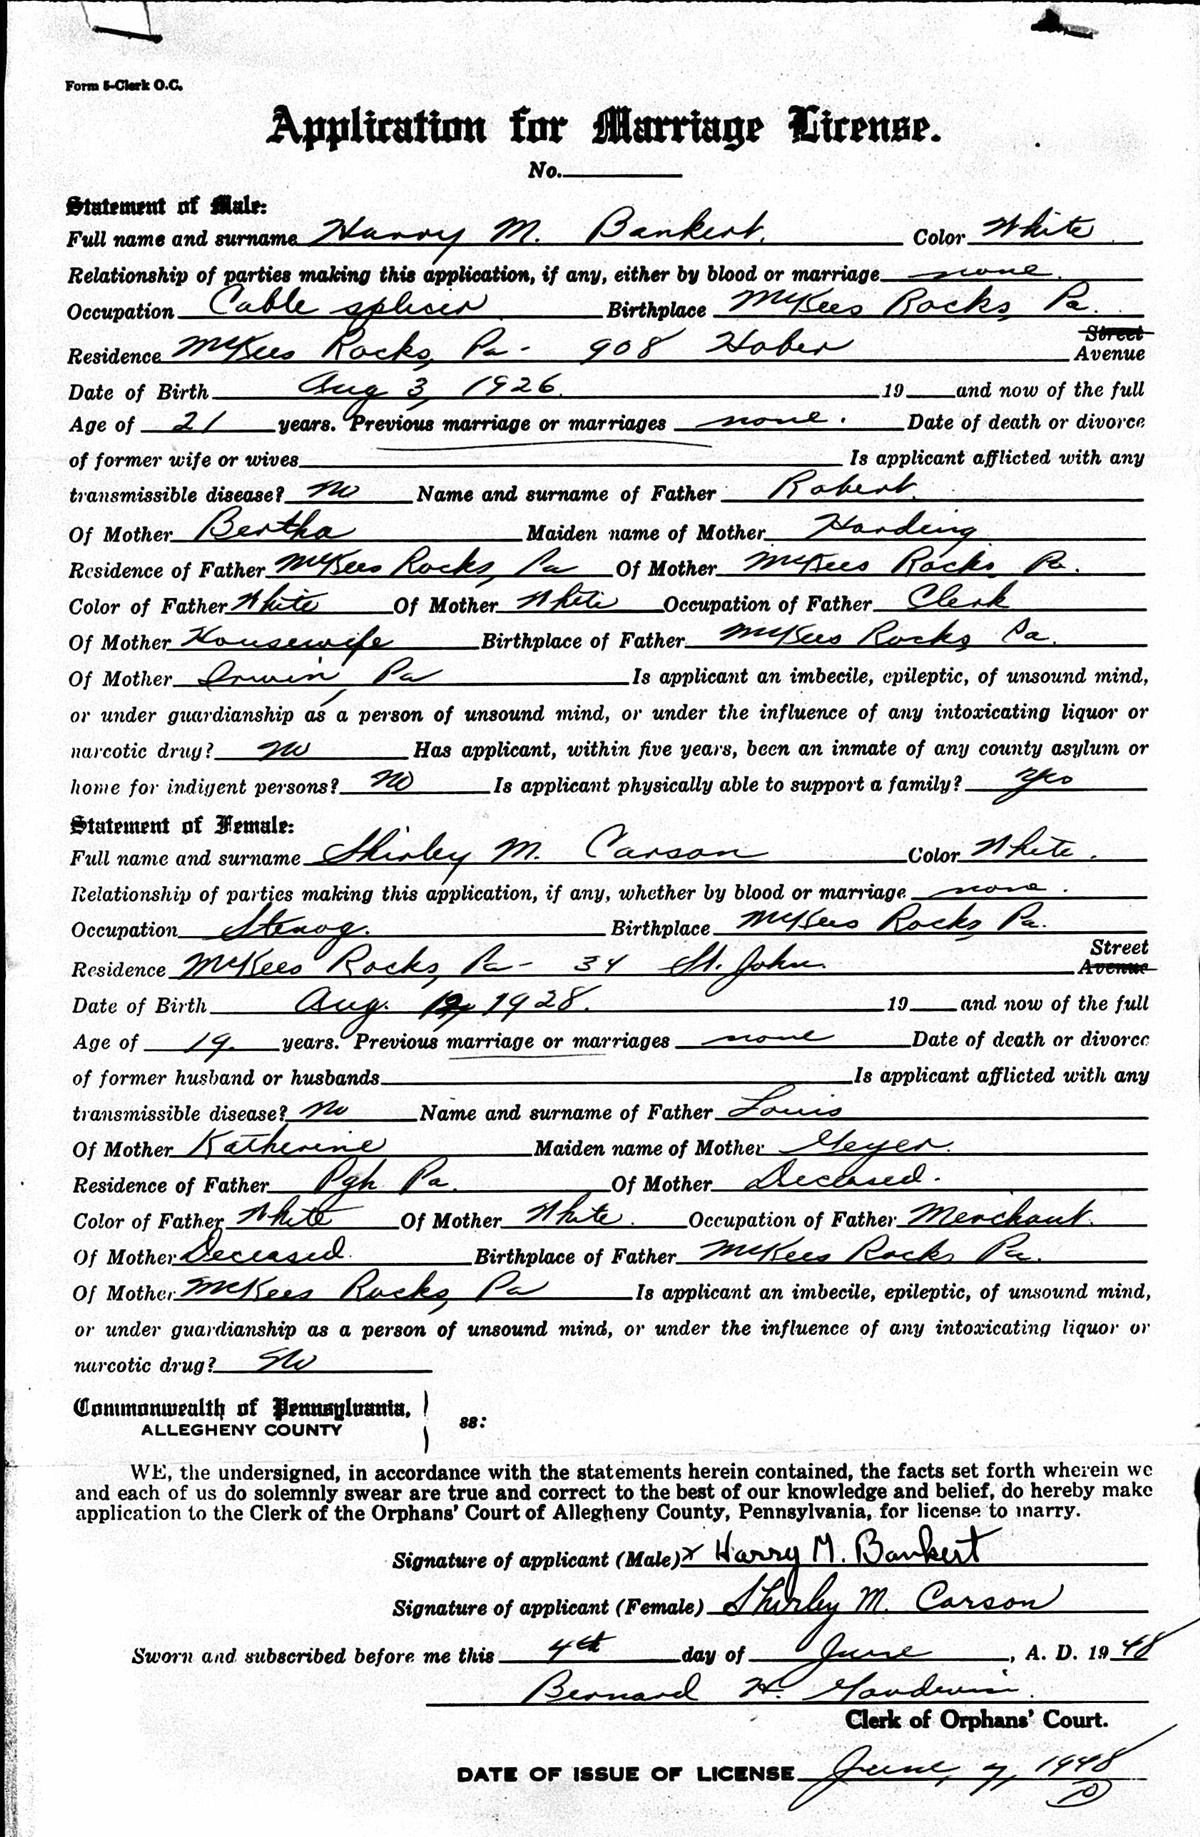 Form 5-Clerk O.C.
Application for Marriage License.
No.
Statement of Male:
Full name and surname Harry M. Bankert. Color White
Relationship of parties making this application, if any, either by blood or marriage none.
Occupation Cable splicer Birthplace McKees Rocks, Pa.
Street
Residence McKees Rocks, Pa- 908 Hober Avenue
Date of Birth Aug 3, 1926. 19 and now of the full
Age of 21 years. Previous marriage or marriages none. Date of death or divorce
of former wife or wives Is applicant afflicted with any
transmissible disease? No Name and surname of Father Robert.
Of Mother Bertha Maiden name of Mother Harding
Residence of Father McKees Rocks, Pa Of Mother McKees Rocks, Pa.
Color of Father White Of Mother White Occupation of Father Clerk
Of Mother Housewife Birthplace of Father McKees Rocks, Pa.
Of Mother Irwin, Pa Is applicant an imbecile, epileptic, of unsound mind,
or under guardianship as a person of unsound mind, or under the influence of any intoxicating liquor or
narcotic drug? No Has applicant, within five years, been an inmate of any county asylum or
home for indigent persons? No Is applicant physically able to support a family? Yes
Statement of Female:
Full name and surname Shirley M. Carson Color White.
Relationship of parties making this application, if any, whether by blood or marriage none.
Occupation Stenog. Birthplace McKees Rocks, Pa.
Street
Residence McKees Rocks, Pa- 34 St. John. Avenue
Date of Birth Aug. 12, 1928. 19 and now of the full
Age of 19. years. Previous marriage or marriages none Date of death or divorce
of former husband or husbands Is applicant afflicted with any
transmissible disease? No Name and surname of Father Louis
Of Mother Katherine Maiden name of Mother Geyer.
Residence of Father Pgh Pa. Of Mother Deceased.
Color of Father White Of Mother White. Occupation of Father Merchant.
Of Mother Deceased. Birthplace of Father McKees Rocks Pa.
Of Mother McKees Rocks, Pa Is applicant an imbecile, epileptic, of unsound mind,
or under guardianship as a person of unsound mind, or under the influence of any intoxicating liquor or
narcotic drug? No
Commonwealth of Pennsylvania,
ALLEGHENY COUNTY ss:
WE, the undersigned, in accordance with the statements herein contained, the facts set forth wherein we
and each of us do solemnly swear are true and correct to the best of our knowledge and belief, do hereby make
application to the Clerk of the Orphans' Court of Allegheny County, Pennsylvania, for license to marry.
Signature of applicant (Male) x Harry M. Bankert
Signature of applicant (Female) Shirley M. Carson
Sworn and subscribed before me this 4th day of June, A. D. 1948
Bernard H. Goodwin.
Clerk of Orphans' Court.
DATE OF ISSUE OF LICENSE June, 7, 1948